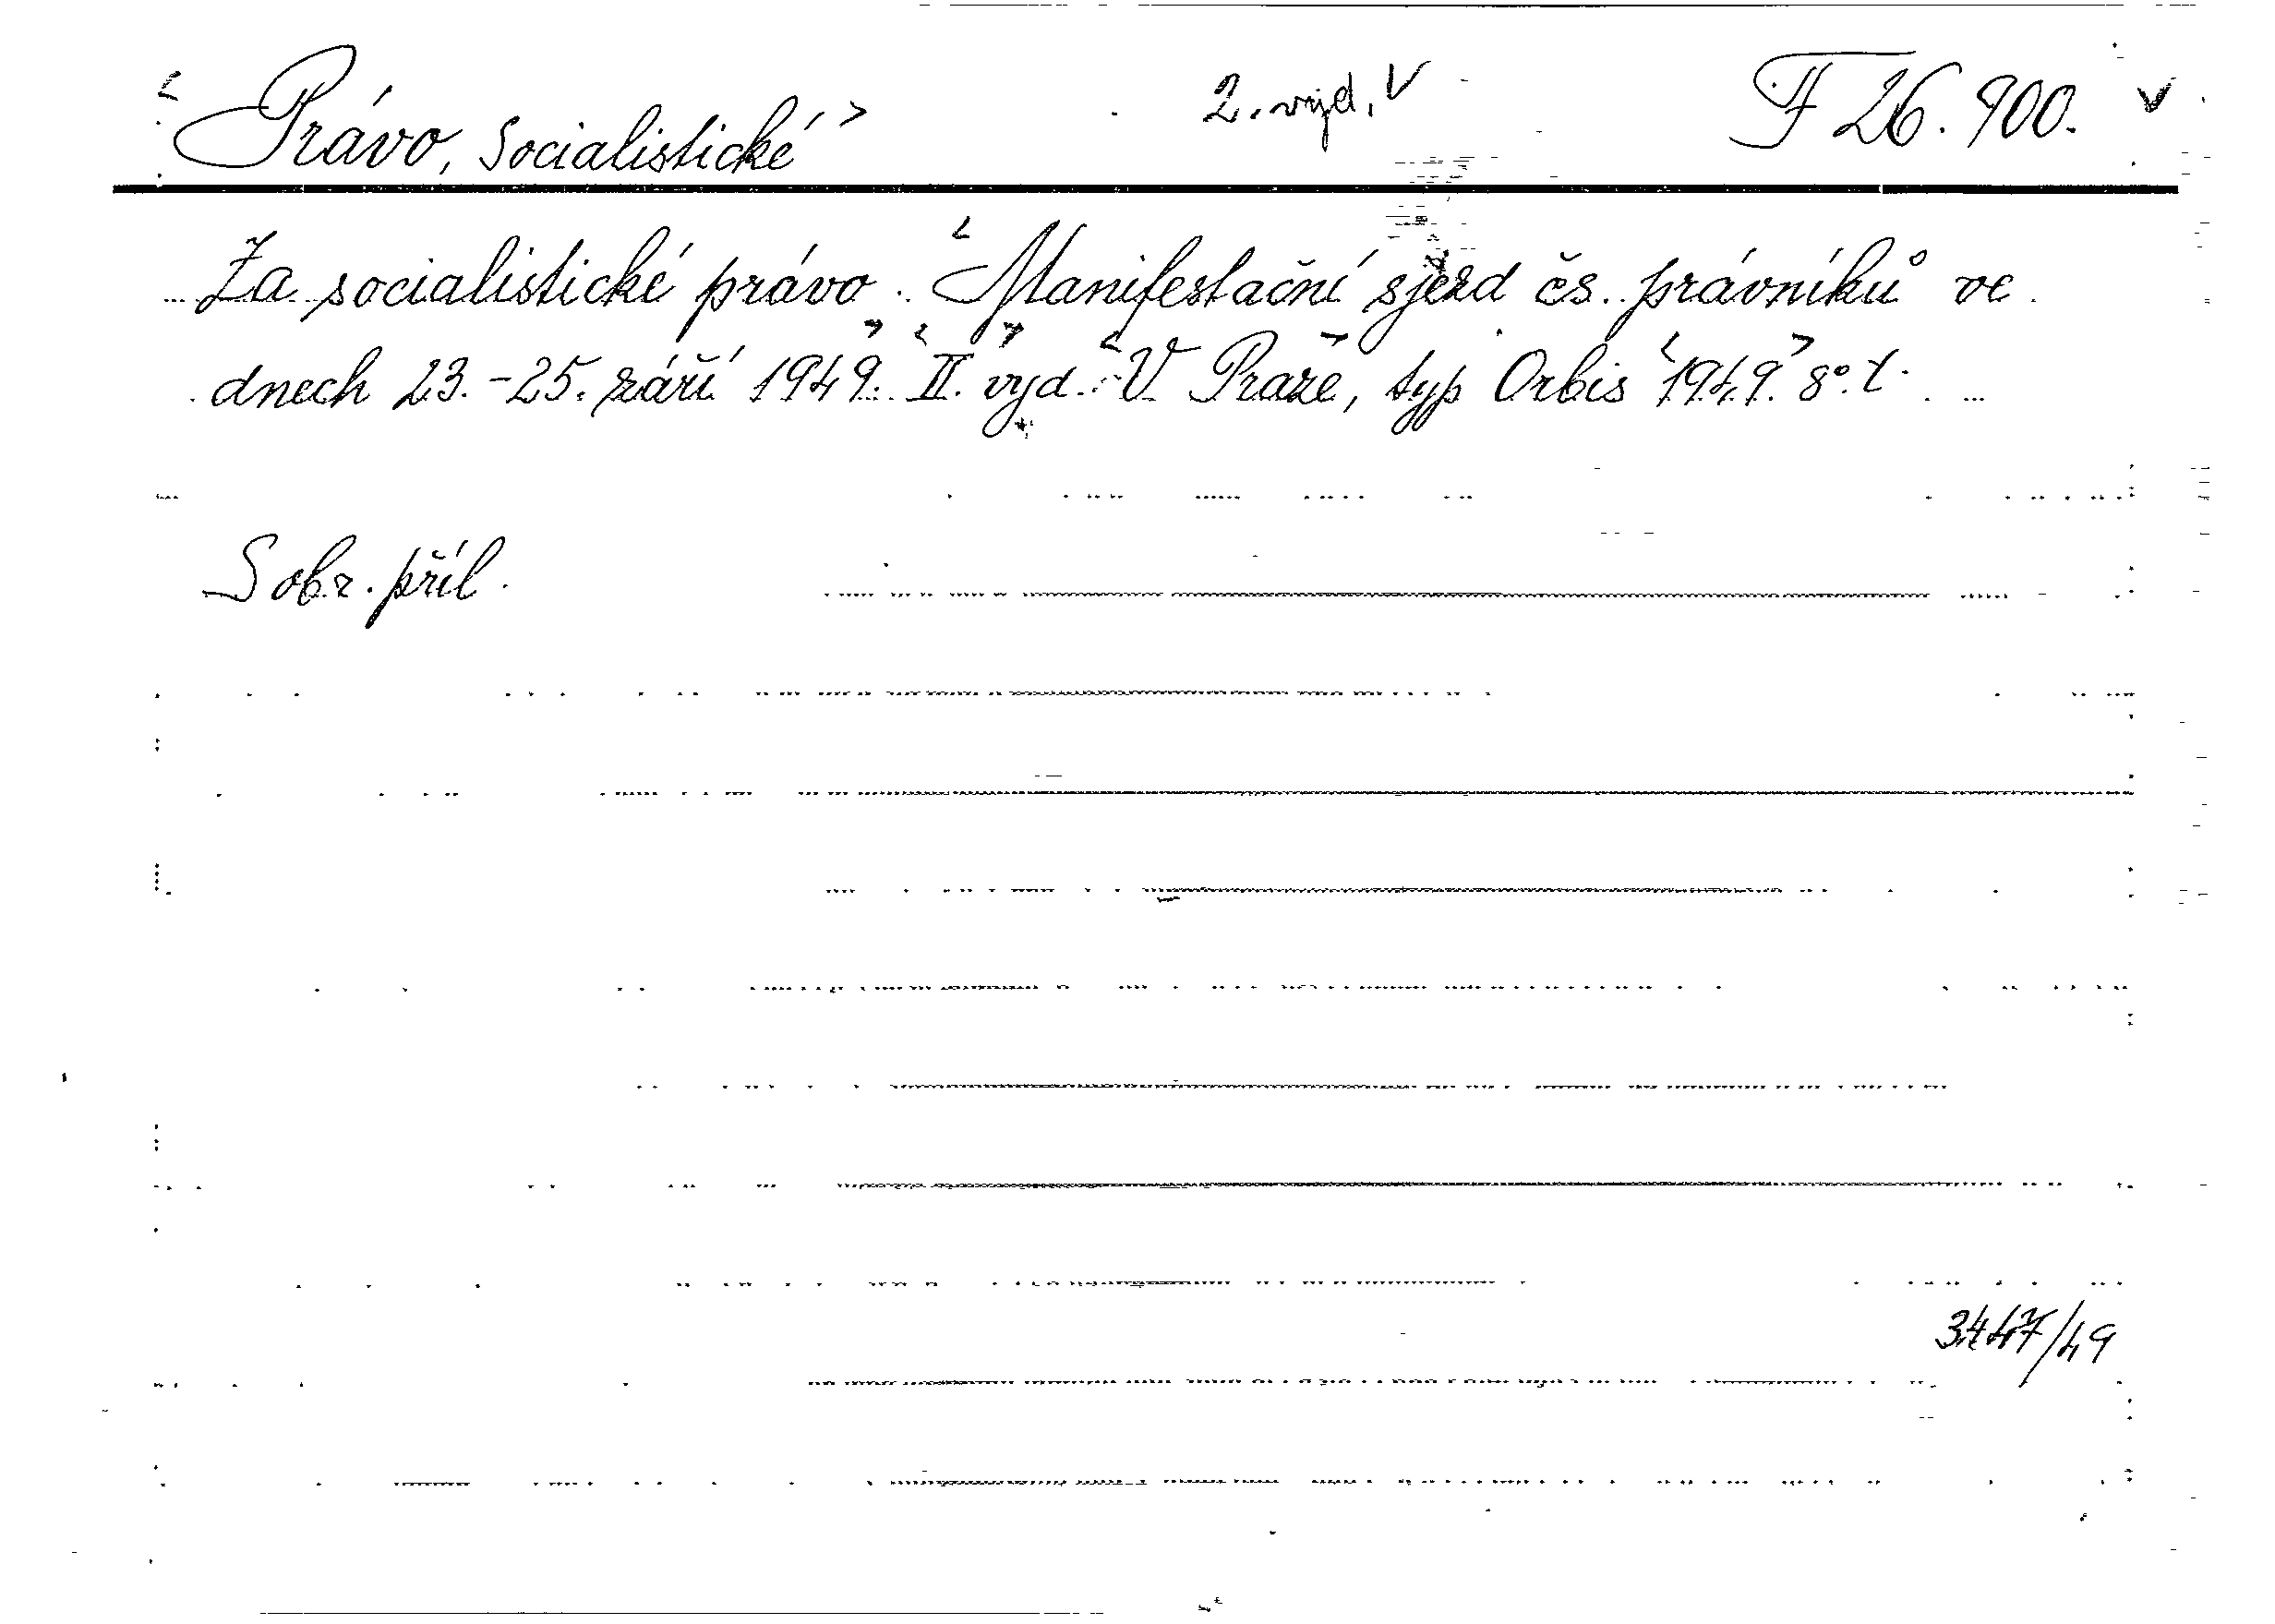 <Právo, Socialistické> 2. vyd. V F 26.900. v
Za socialistické právo. <Manifestační sjezd čs. právníků ve
dnech 23.-25. září 1949.> <II. vyd.> <V Praze, typ Orbis <1949.> 8°. t.
S obr. příl.
3447/49